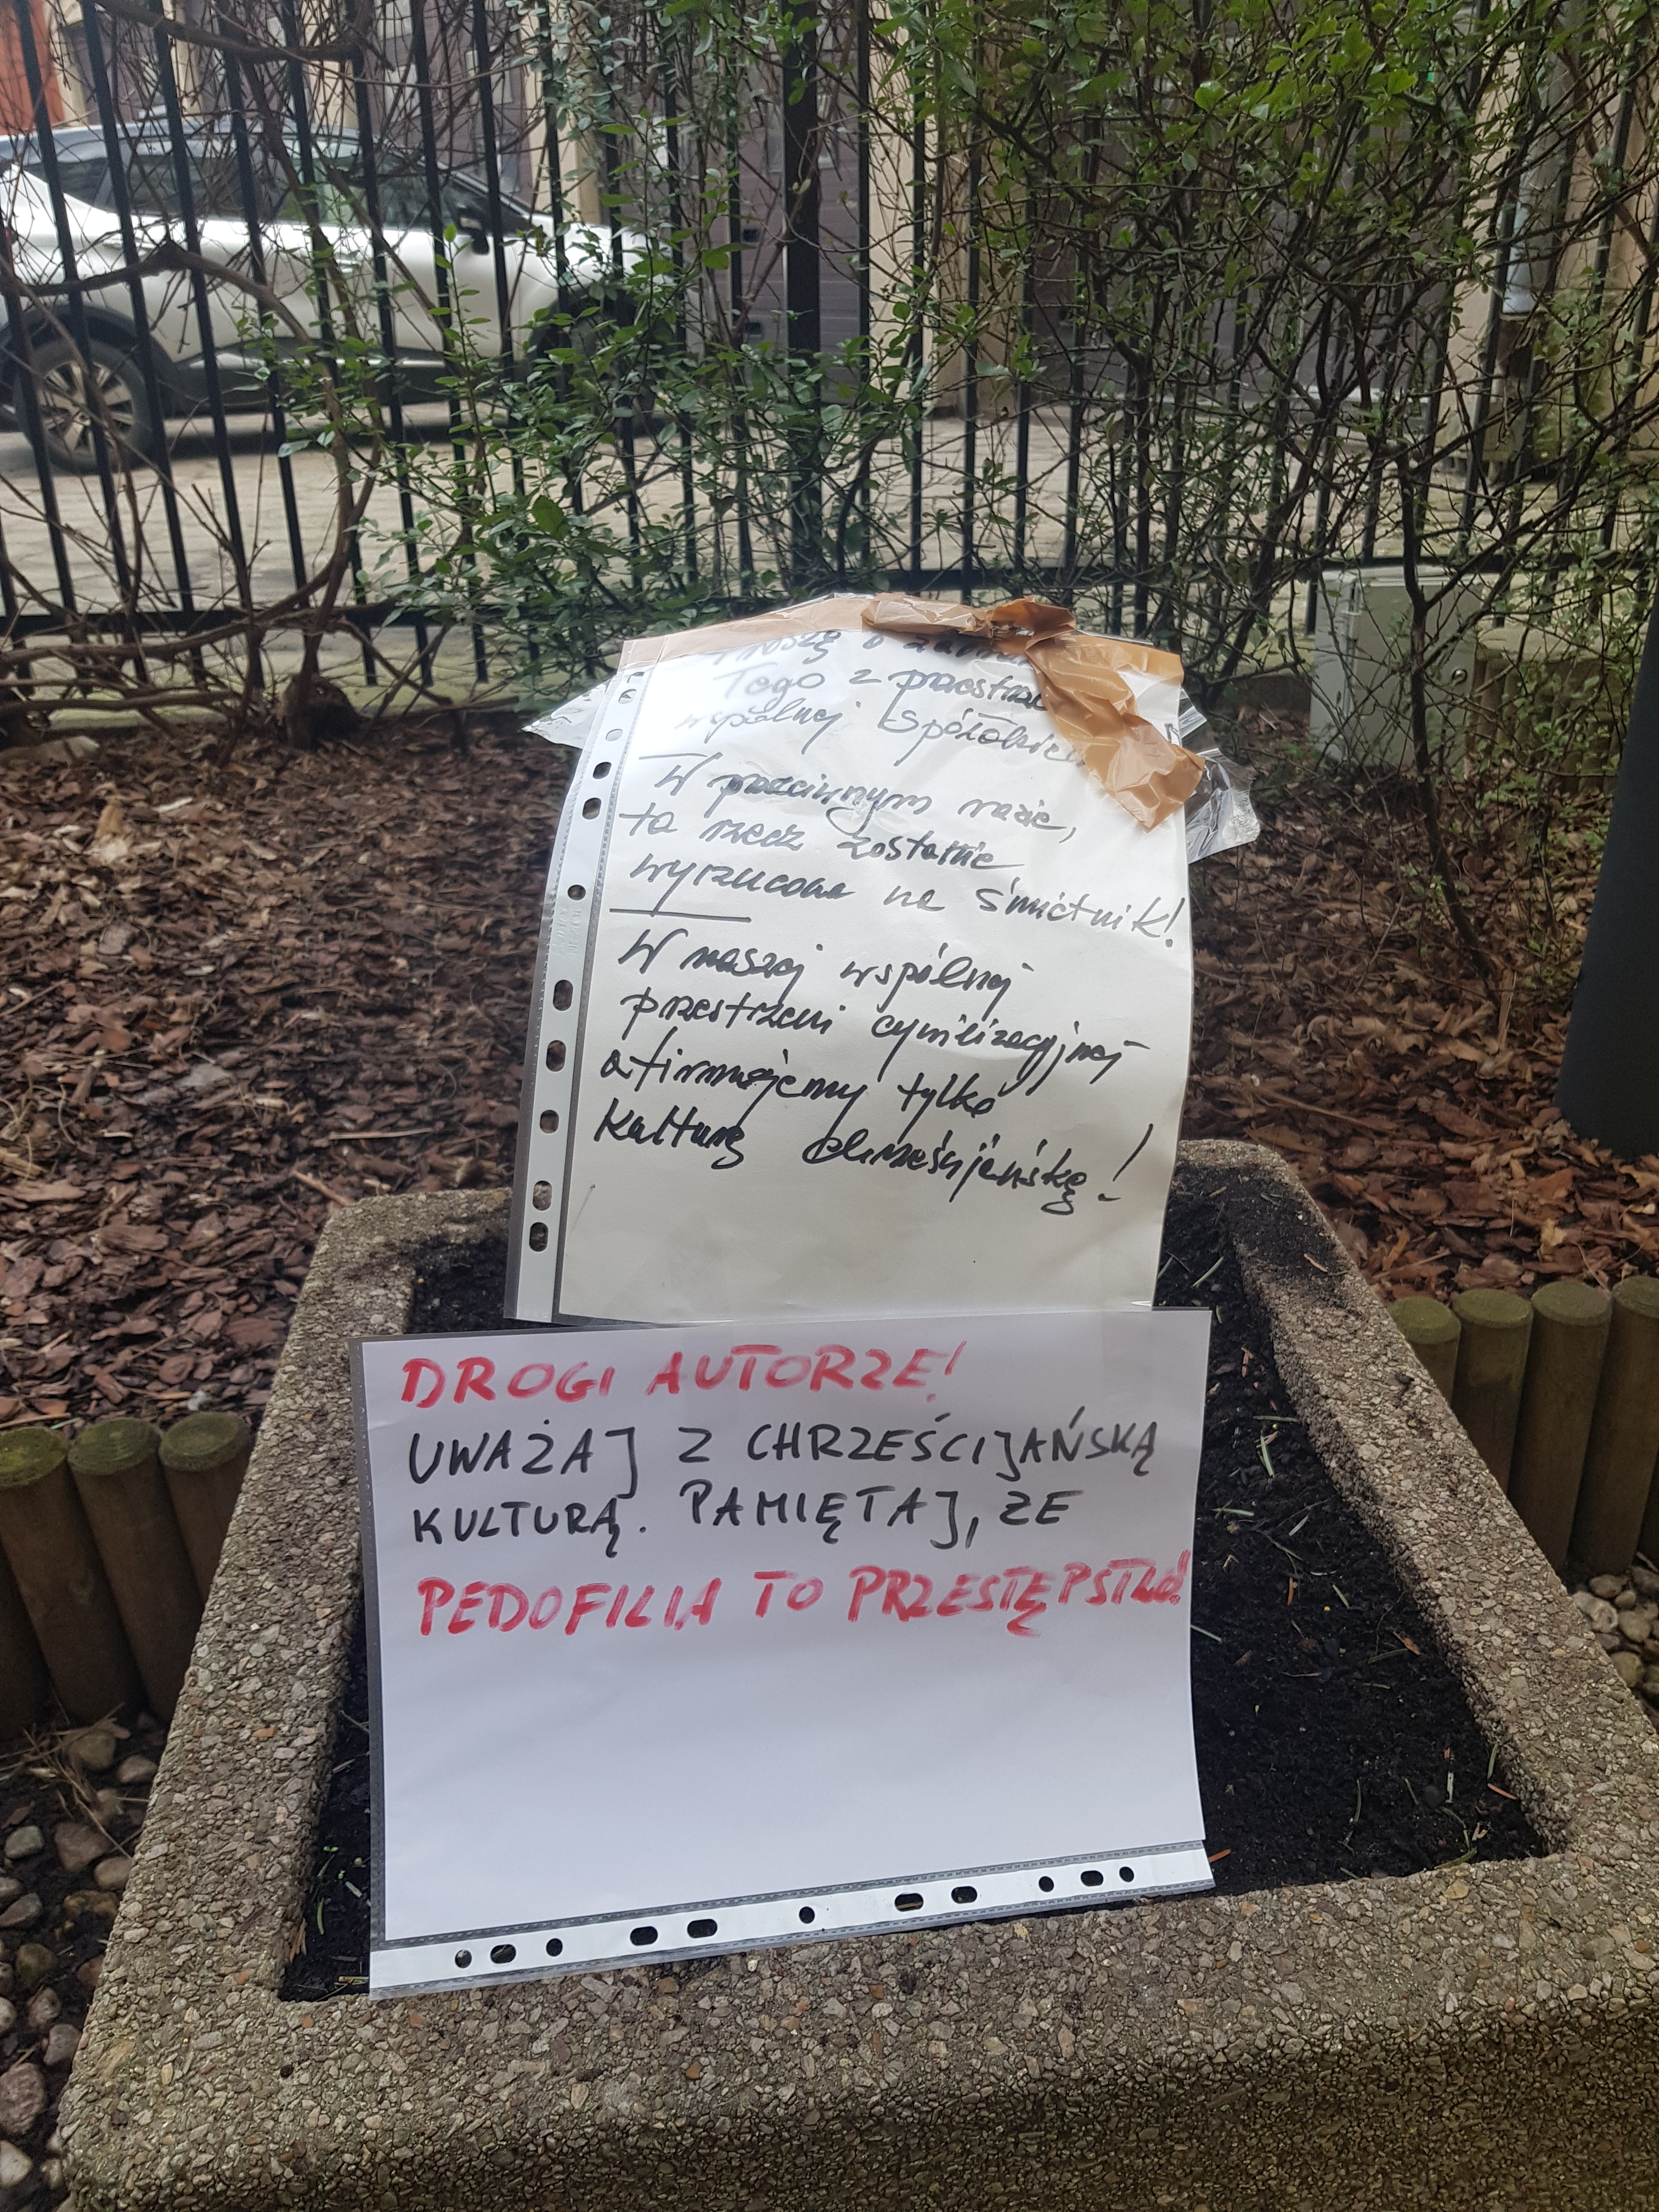 Proszę o
Tego z
wspólnej Spółdzielni
W przeciwnym razie,
ta rzecz zostanie
wyrzucona na śmietnik!
W naszej wspólnej
przestrzeni cywilizacyjnej
afirmujemy tylko
Kulturę chrześcijańską!
DROGI AUTORZE!
UWAŻAJ Z CHRZEŚCIJAŃSKĄ
KULTURĄ. PAMIĘTAJ, ZE
PEDOFILIA TO PRZESTĘPSTWO!